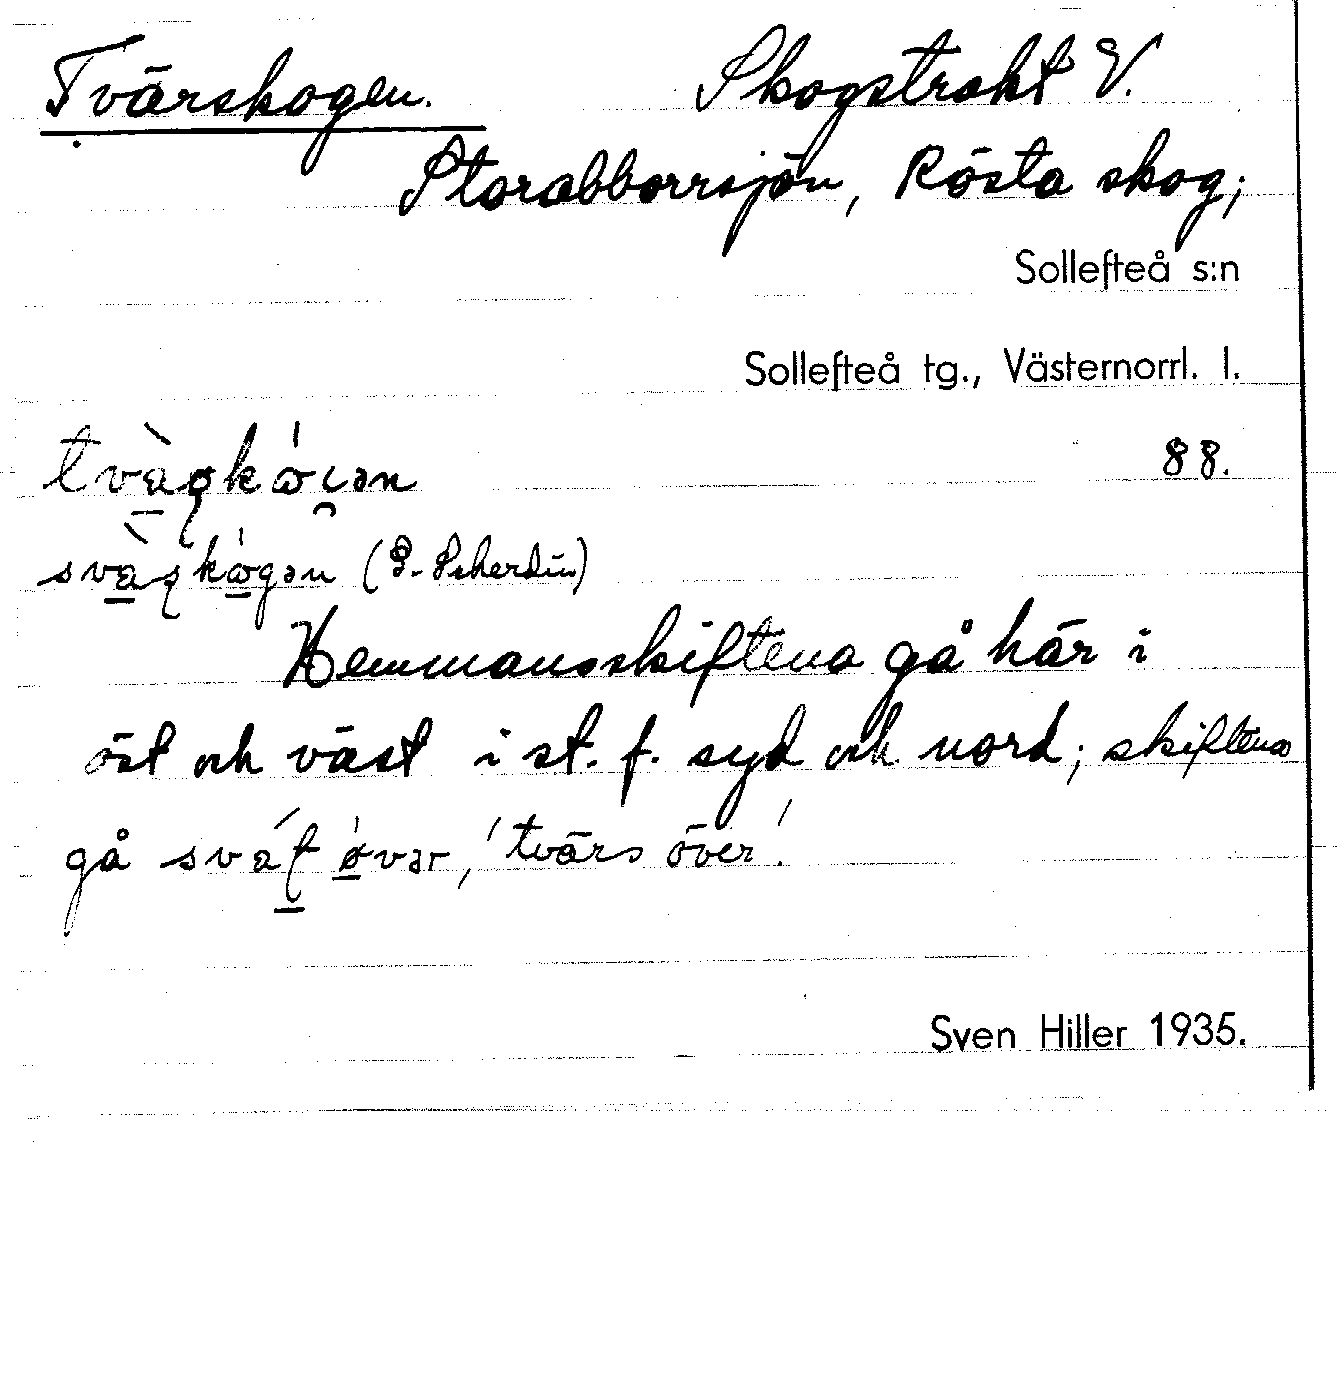 Tvärskogen. Skogstrakt V.
Storabborrsjön, Rösta skog;
Sollefteå s:n
Sollefteå tg., Västernorrl. l.
88.
Hemmansskiftena gå här i
öst och väst i st. f. syd och nord; skiftena
gå övər, 'tvärs över'.
Sven Hiller 1935.